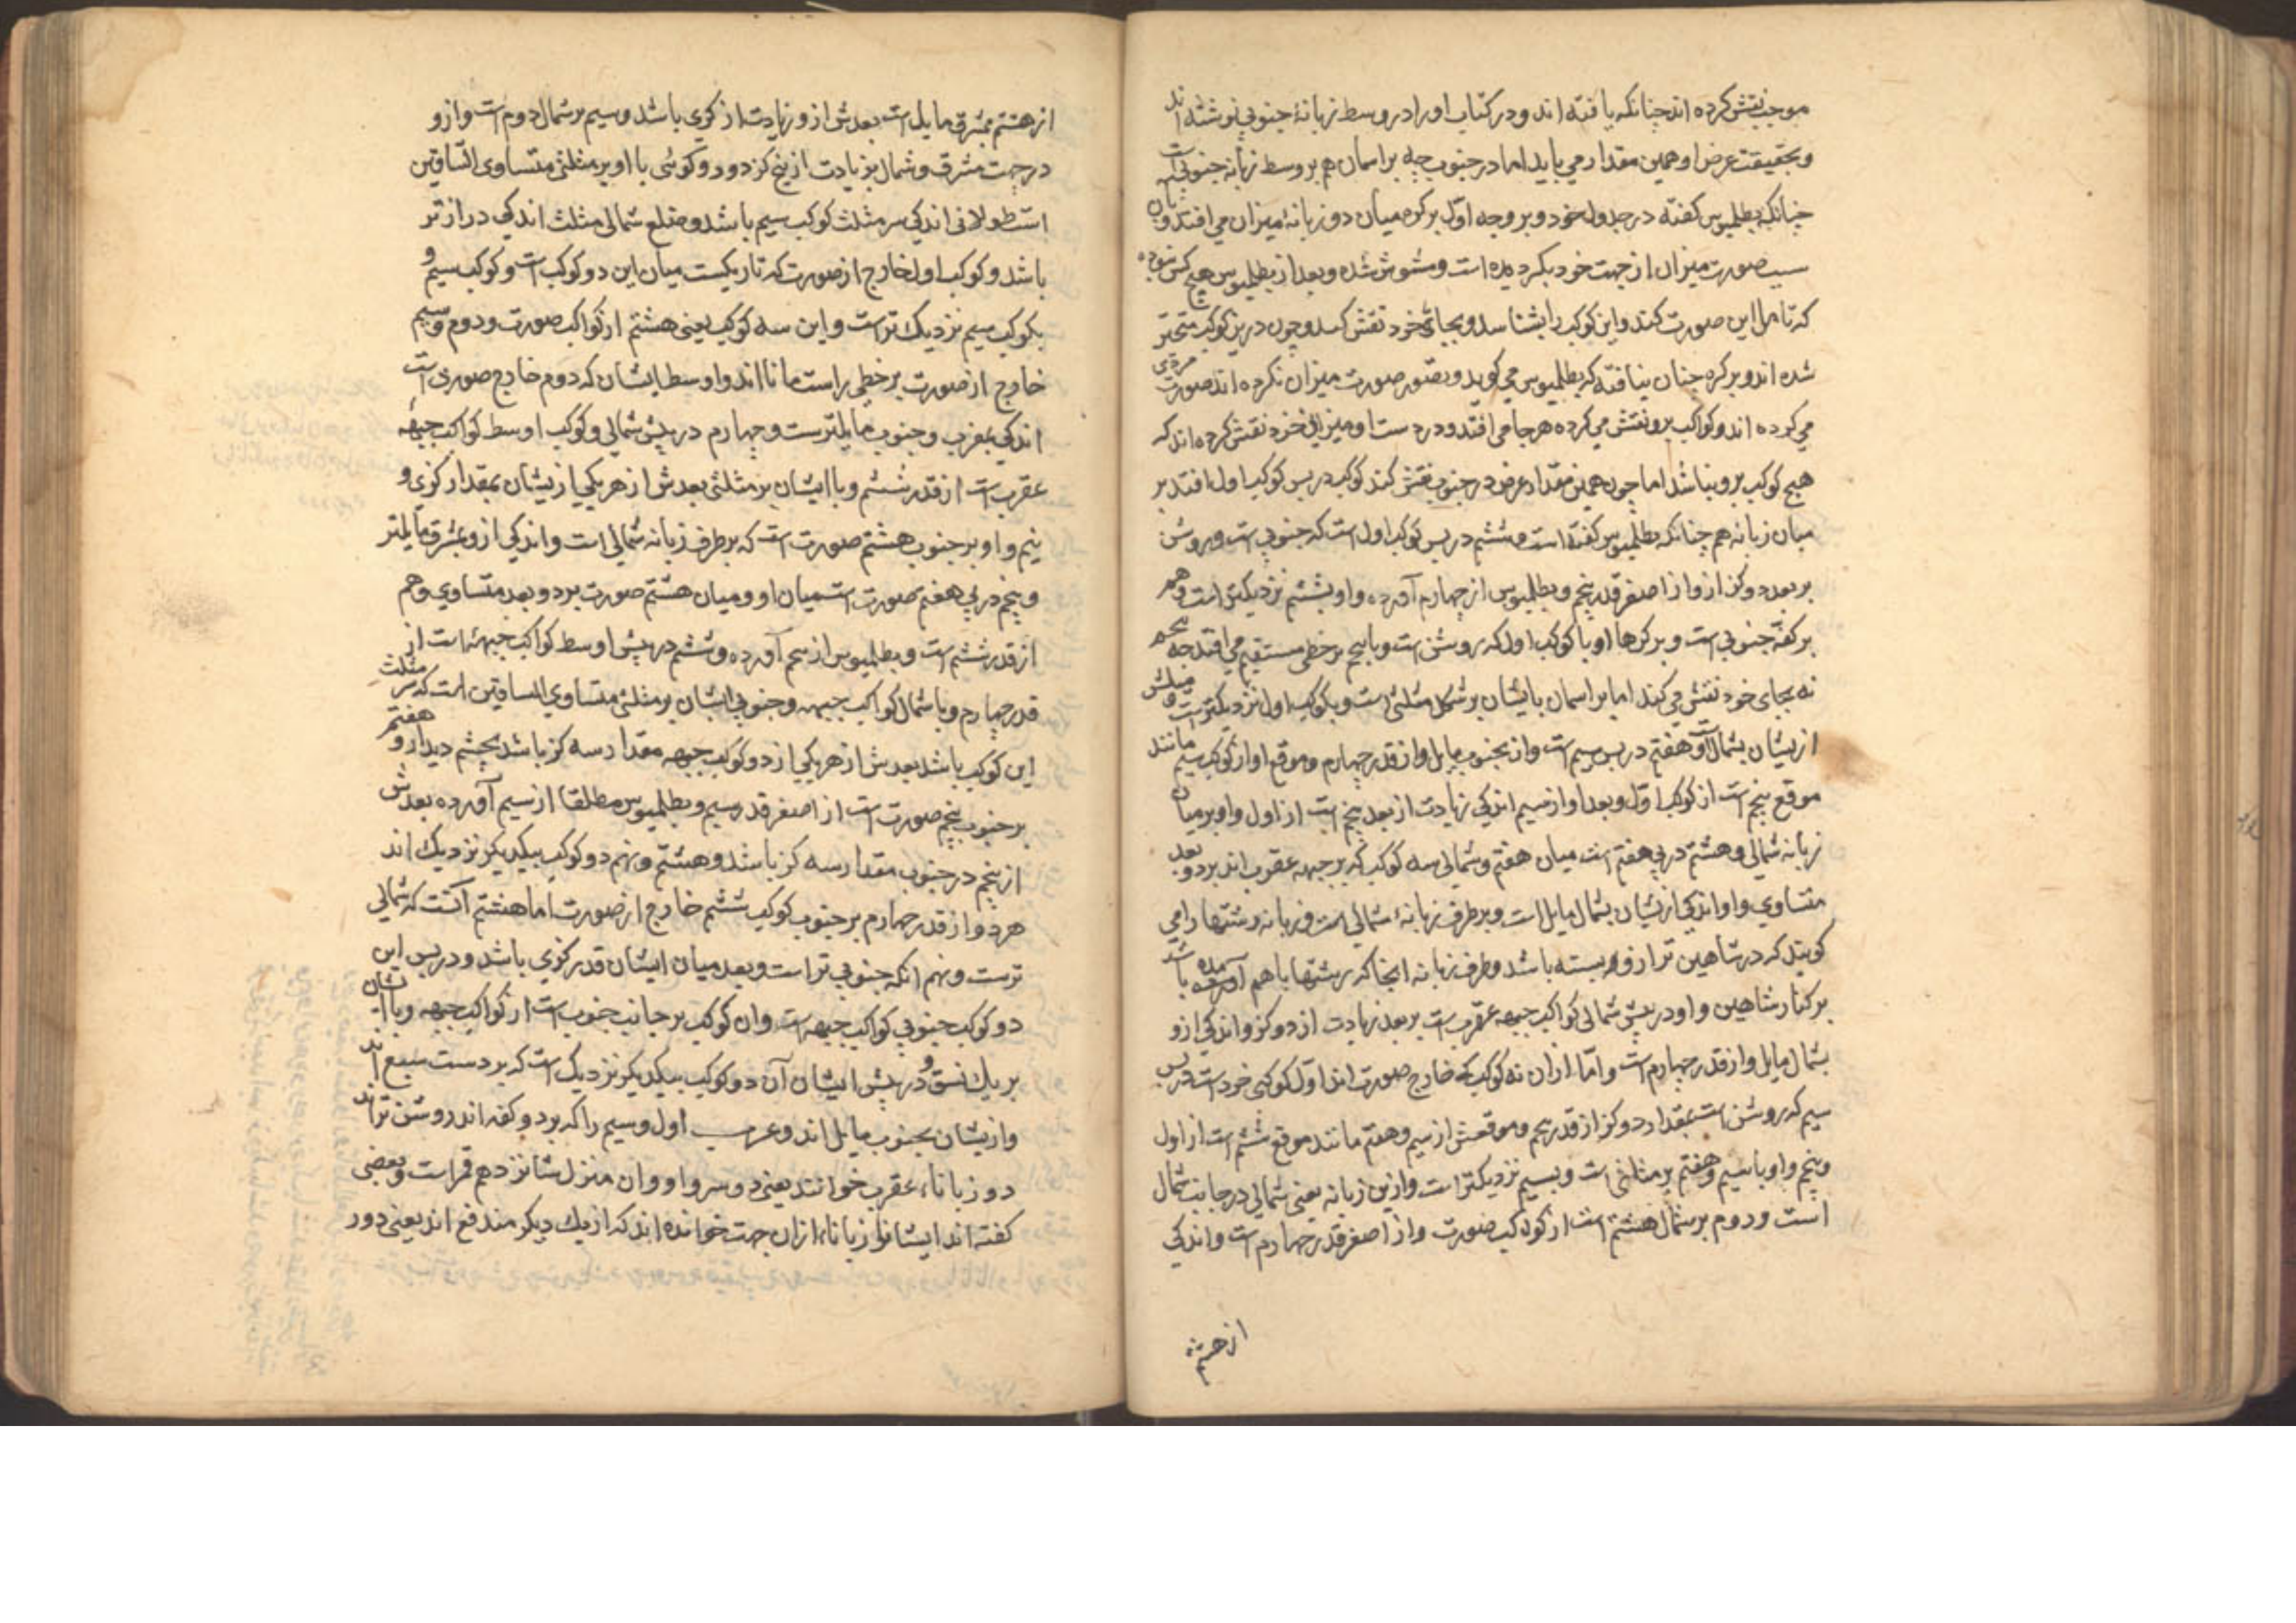 موجب نقش کرده اند چنانکه یافته اند و در کتاب او را در وسط زبانهٔ جنوبی نوشته اند
و بحقیقت عرض او همین مقدار می باید اما در جنوب چه بر اسمان هم بر وسط زبانه جنوبی است
چنانکه بطلمیوس کفته در جدول خود و بر وجه اول بر کره میان دو زبانهٔ میزان می افتد و بدان
سبب صورت میزان از جهت خود بکردیده است و مشوش شده و بعد از بطلمیوس هیچ کس نبوده
که تامل این صورت کند و این کوکب را بشناسد و بجای خود نقش کند و چون درین کوکب متحیر
شده اند و بر کره چنان نیافته که بطلمیوس می کوید و تصور صورت میزان نکرده اند صورت مردی
می کرده اند و کواکب برو نقش می کرده هر جا می افتد و در دست او میزانی خرد نقش کرده اند که
هیچ کوکب برو نباشد اما چون همین مقدار عرض در جنوب نقش کند کوکب در پس کوکب اول افتد بر
میان زبانه هم چنانکه بطلمیوس کفته است و ششم در پس کوکب اول است که جنوبی است و روشن
بر بعد دو کز ازو از اصغر قدر پنجم و بطلمیوس از چهارم آورده و او بششم نزدیکتر است و هم
بر کفهٔ جنوبی است و بر کرها او با کوکب اول که روشن است و با پنجم بر خطی مستقیم می افتد چه پنجم
نه بجای خود نقش می کنند اما بر اسمان با یشان بر شکل مثلثی است و بکوکب اول نزدیکترست و میلش
ازیشان بشمال است و هفتم در پس سیم است و از بجنوب مایل و از قدر چهارم و موقع او از کوکب سیم مانند
موقع پنجم است از کوکب اول و بعد او از سیم اندکی زیادت از بعد پنجم است از اول و او بر میان
زبانه شمالی و هشتم در پی هفتم است میان هفتم و شمالی سه کوکب که بر جبهه عقرب اند بر دو بعد
متساوی و او اندکی ازیشان بشمال مایل است و بر طرف زبانهٔ شمالی است و زبانه رشتها را می
کویند که در شاهین ترازو بسته باشد و طرف زبانه انجا که رشتها با هم آمده باشد
بر کنار شاهین و او در پیش شمالی کواکب جبهه عقرب است بر بعد زیادت از دو کز و اندکی ازو
بشمال مایل و از قدر چهارم است و امّا ازان نه کوکب که خارج صورت اند اول کوکبی خرد است در پس
سیم که روشن است بمقدار دو کز از قدر پنجم و موقعش از سیم و هفتم مانند موقع ششم است از اول
و پنجم و او با سیم و هفتم بر مثلثی است و بسیم نزدیکتر است و ازین زبانه یعنی شمالی در جانب شمال
است و دوم بر شمال هشتم است از کواکب صورت و از اصغر قدر چهارم است و اندکی
از هشتم
از هشتم بمشرق مایل است بعدش ازو زیادت از کزی باشد و سیم بر شمال دوم است و ازو
در جهت مشرق و شمال بزیادت از پنج کز دور و کوئی با او بر مثلثی متساوی الساقین
است طولانی اندکی سر مثلث کوکب سیم باشد و ضلع شمالی مثلث اندکی دراز تر
باشد و کوکب اول خارج از صورت که تاریکست میان این دو کوکب است و کوکب سیم و
بکوکب سیم نزدیک تر است و این سه کوکب یعنی هشتم از کواکب صورت و دوم و سیم
خارج از صورت بر خطی راست مانا اند و اوسط ایشان که دوم خارج صورت است
اندکی بمغرب و جنوب مایلترست و چهارم در پیش شمالی و کوکب اوسط کواکب جبهه
عقرب است از قدر ششم و با ایشان بر مثلثی بعدش از هر یکی ازیشان بمقدار کزی و
نیم و او بر جنوب هشتم صورت است که بر طرف زبانه شمالی است و اندکی ازو بمشرق مایلتر
و پنجم در پی هفتم صورت است میان او و میان هشتم صورت بر دو بعد متساوی و هم
از قدر ششم است و بطلمیوس از پنجم آورده و ششم در پیش اوسط کواکب جبهه است از
قدر چهارم و با شمال کواکب جبهه و جنوبی ایشان بر مثلثی متساوی الساقین است که سر مثلث
این کوکب باشد بعدش از هر یکی از دو کوکب جبهه مقدار سه کز باشد بچشم دیدار و هفتم
بر جنوب پنجم صورت است از اصغر قدر سیم و بطلمیوس مطلقا از سیم آورده بعدش
از پنجم در جنوب مقدار سه کز باشد و هشتم و نهم دو کوکب بیکدیکر نزدیک اند
هر دو از قدر چهارم بر جنوب کوکب ششم خارج از صورت اما هشتم آنست که شمالی
ترست و نهم انکه جنوبی تر است و بعد میان ایشان قدر کزی باشد و در پس این
دو کوکب جنوبی کواکب جبهه است وان کوکب بر جانب جنوب است از کواکب جبهه و با ایشان
بر یک نسق و در پیش ایشان آن دو کوکب بیکدیکر نزدیک است که بر دست سبع اند
و ازیشان بجنوب مایل اند و عرب اول و سیم را که بر دو کفه اند روشن تر اند
دو زبانا، عقرب خوانند یعنی دو سرو او وان منزل شانزدهم قمر است و بعضی
کفته اند ایشانرا زبانا، ازان جهت خوانده اند که از یک دیکر مندفع اند یعنی دور